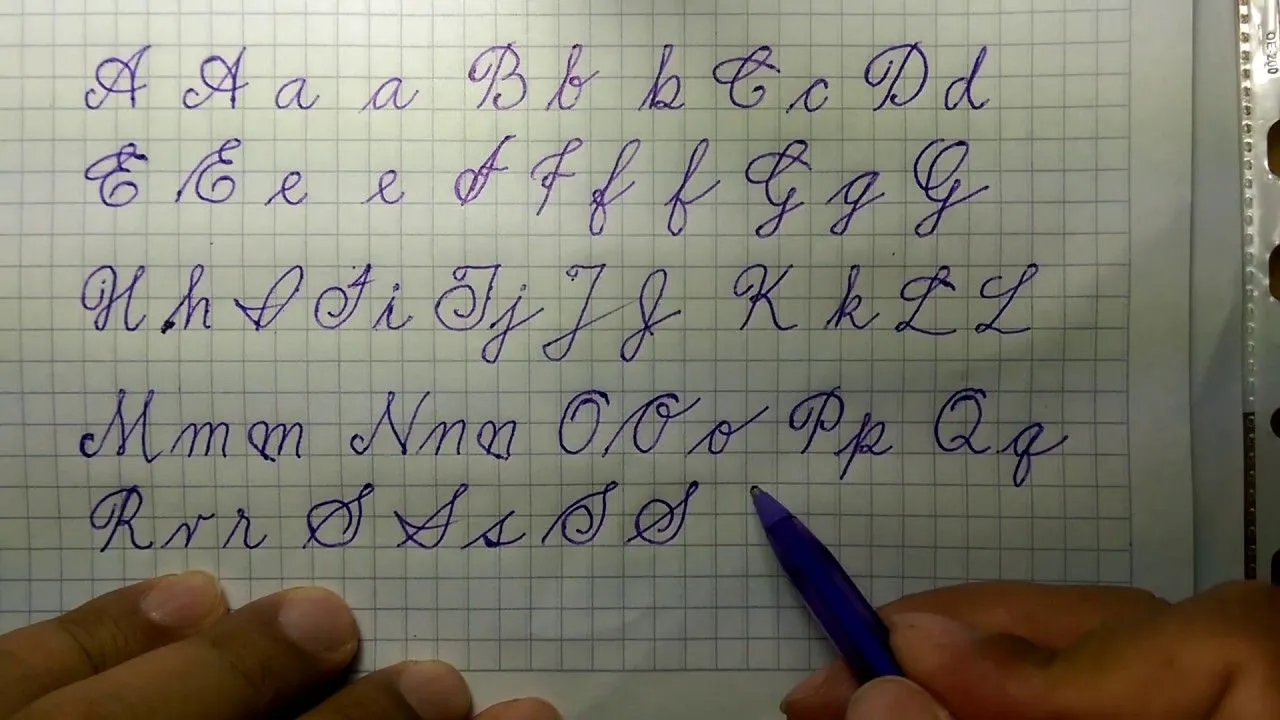 A A a a B b b C c D d
E E e e F F f f G g G
H h I I i J j J J K k L L
M m m N n n O O o P p Q q
R r r S S s S S